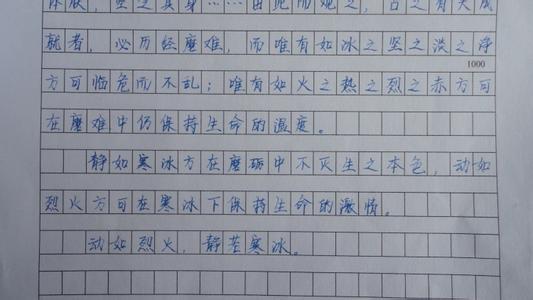 体肤，空乏其身……由此而观之，古之有大成
就者，必历经磨难，而唯有如冰之坚之淡之净
1000
方可临危而不乱；唯有如火之热之烈之赤方可
在磨难中仍保持生命的温度。
静如寒冰方在磨砺中不灭生之本色，动如
烈火方可在寒冰下保持生命的激情。
动如烈火，静若寒冰。